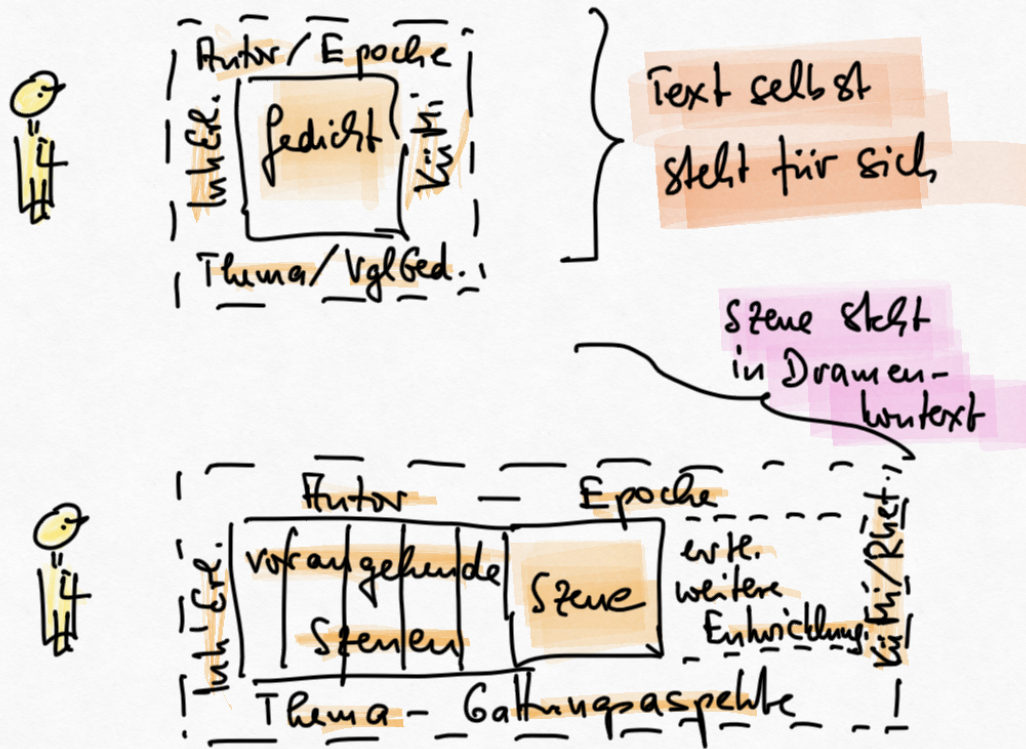 Autor / Epoche
Inh Erl.
Gedicht
KüMi
Thema / VglGed.
Text selbst
steht für sich
Szene steht
in Dramen-
kontext
Autor - Epoche
Inh Erl.
vorangehende
Szenen
Szene
evtl.
weitere
Entwicklung
KüMi/Rhet.
Thema - Gattungsaspekte